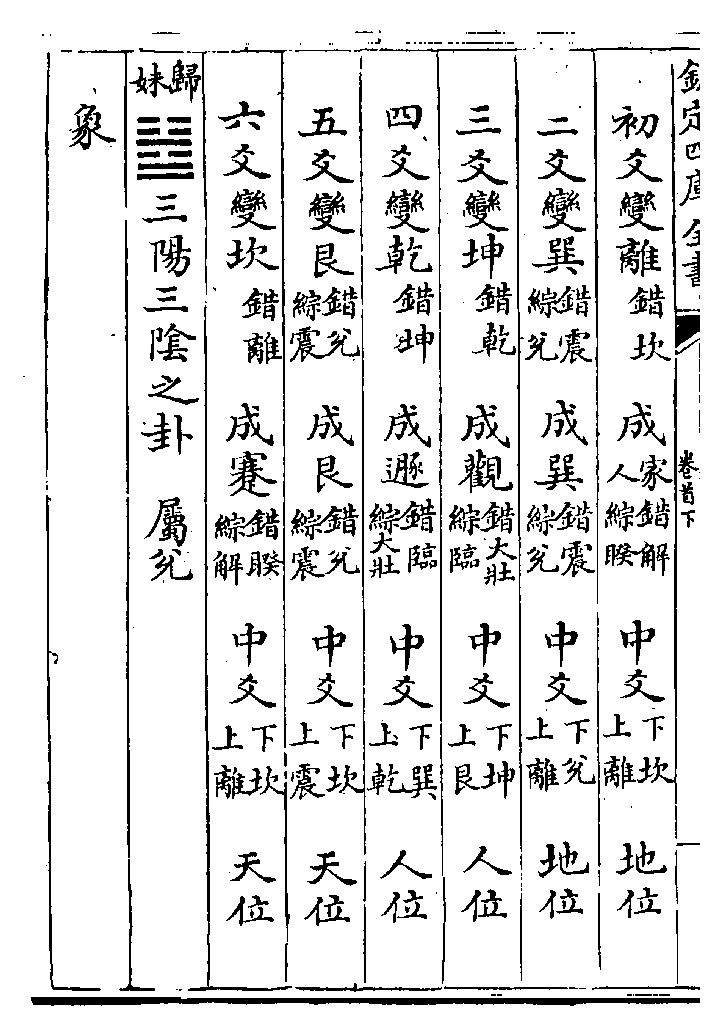 欽定四庫全書
卷首下
初爻變離錯坎 成家人錯解綜睽 中爻下坎上離 地位
二爻變巽錯震綜兊 成巽錯震綜兊 中爻下兊上離 地位
三爻變坤錯乾 成觀錯大壯綜臨 中爻下坤上艮 人位
四爻變乾錯坤 成遯錯臨綜大壯 中爻下巽上乾 人位
五爻變艮錯兊綜震 成艮錯兊綜震 中爻下坎上震 天位
六爻變坎錯離 成蹇錯睽綜解 中爻下坎上離 天位
歸妹 三陽三陰之卦 屬兊
象